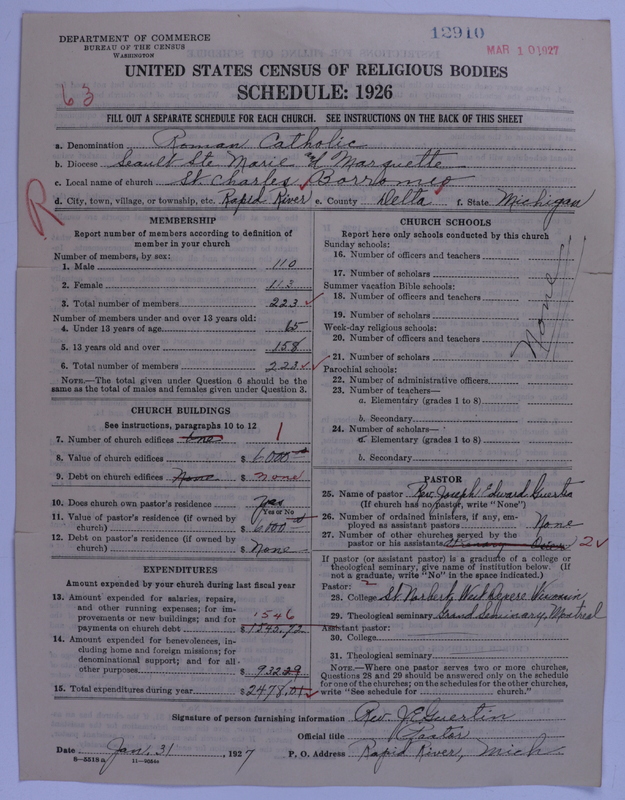 DEPARTMENT OF COMMERCE
BUREAU OF THE CENSUS
WASHINGTON
12910
MAR 10 1927
UNITED STATES CENSUS OF RELIGIOUS BODIES
SCHEDULE: 1926
63
FILL OUT A SEPARATE SCHEDULE FOR EACH CHURCH. SEE INSTRUCTIONS ON THE BACK OF THIS SHEET
a. Denomination Roman Catholic
b. Diocese Seault Ste Marie & Marquette
c. Local name of church St Charles Borromeo
d. City, town, village, or township, etc. Rapid River e. County Delta f. State Michigan
R
MEMBERSHIP
Report number of members according to definition of
member in your church
Number of members, by sex:
1. Male 110
2. Female 113
3. Total number of members 223
Number of members under and over 13 years old:
4. Under 13 years of age 65
5. 13 years old and over 158
6. Total number of members 223
NOTE.—The total given under Question 6 should be
the same as the total of males and females given under Question 3.
CHURCH BUILDINGS
See instructions, paragraphs 10 to 12
7. Number of church edifices One 1
8. Value of church edifices $ 6000
9. Debt on church edifices None $ none
10. Does church own pastor's residence Yes
Yes or No
11. Value of pastor's residence (if owned by
church) $ 6000
12. Debt on pastor's residence (if owned by
church) $ None
EXPENDITURES
Amount expended by your church during last fiscal year
13. Amount expended for salaries, repairs,
and other running expenses; for im-
provements or new buildings; and for
payments on church debt 1546 $ 1545.72
14. Amount expended for benevolences, in-
cluding home and foreign missions; for
denominational support; and for all
other purposes $ 932.29
15. Total expenditures during year $ 2478.01
CHURCH SCHOOLS
Report here only schools conducted by this church
Sunday schools:
16. Number of officers and teachers
17. Number of scholars
Summer vacation Bible schools:
18. Number of officers and teachers
19. Number of scholars
Week-day religious schools:
20. Number of officers and teachers
21. Number of scholars
Parochial schools:
22. Number of administrative officers
23. Number of teachers—
a. Elementary (grades 1 to 8)
b. Secondary
24. Number of scholars—
a. Elementary (grades 1 to 8)
b. Secondary
None
PASTOR
25. Name of pastor Rev. Joseph Edward Guertin
(If church has no pastor, write "None")
26. Number of ordained ministers, if any, em-
ployed as assistant pastors None
27. Number of other churches served by the
pastor or his assistants 2
If pastor (or assistant pastor) is a graduate of a college or
theological seminary, give name of institution below. (If
not a graduate, write "No" in the space indicated.)
Pastor:
28. College St Norbert,
29. Theological seminary Grand Seminary, Montreal
Assistant pastor:
30. College
31. Theological seminary
NOTE.—Where one pastor serves two or more churches,
Questions 28 and 29 should be answered only on the schedule
for one of the churches; on the schedules for the other churches,
write "See schedule for church."
Signature of person furnishing information Rev. J E Guertin
Official title Pastor
Date Jan. 31, 1927 P. O. Address Rapid River, Mich
8—5518a 11—9054a